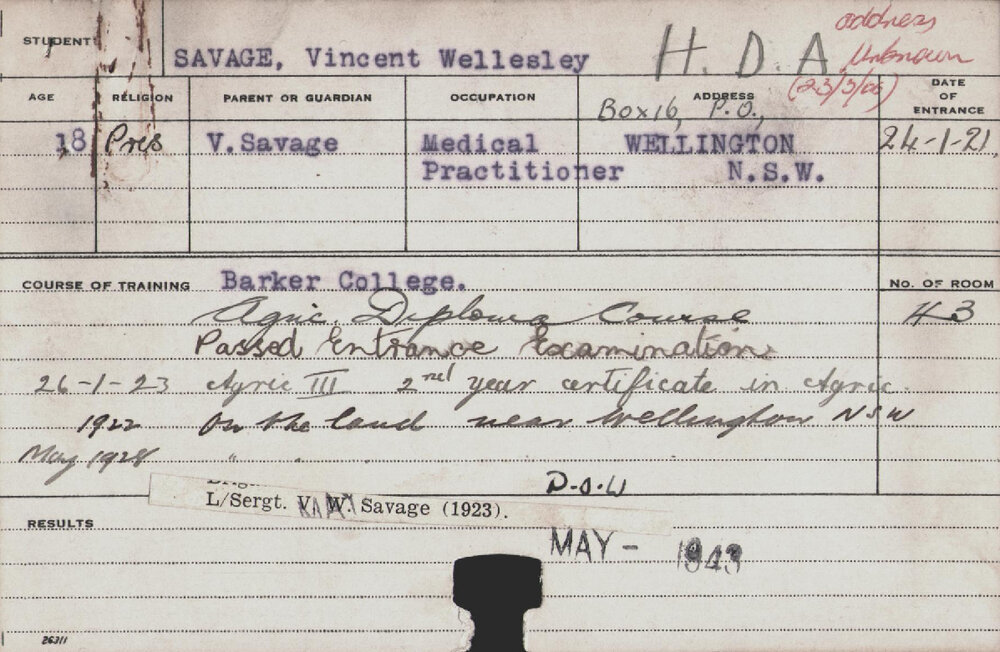 STUDENT SAVAGE, Vincent Wellesley H.D.A. address
unknown
(23/3/06)
AGE RELIGION PARENT OR GUARDIAN OCCUPATION ADDRESS DATE OF ENTRANCE
Box 16, P.O.,
18 Pres V. Savage Medical WELLINGTON 24-1-21
Practitioner N.S.W.
COURSE OF TRAINING Barker College. No. OF ROOM
Agric. Diploma Course 43
Passed Entrance Examination.
26-1-23 Agric III 2nd year certificate in Agric.
1922 On the land near Wellington NSW
May 1928 " "
D.O.W
L/Sergt. V. W. Savage (1923).
RESULTS
MAY - 1943
26311